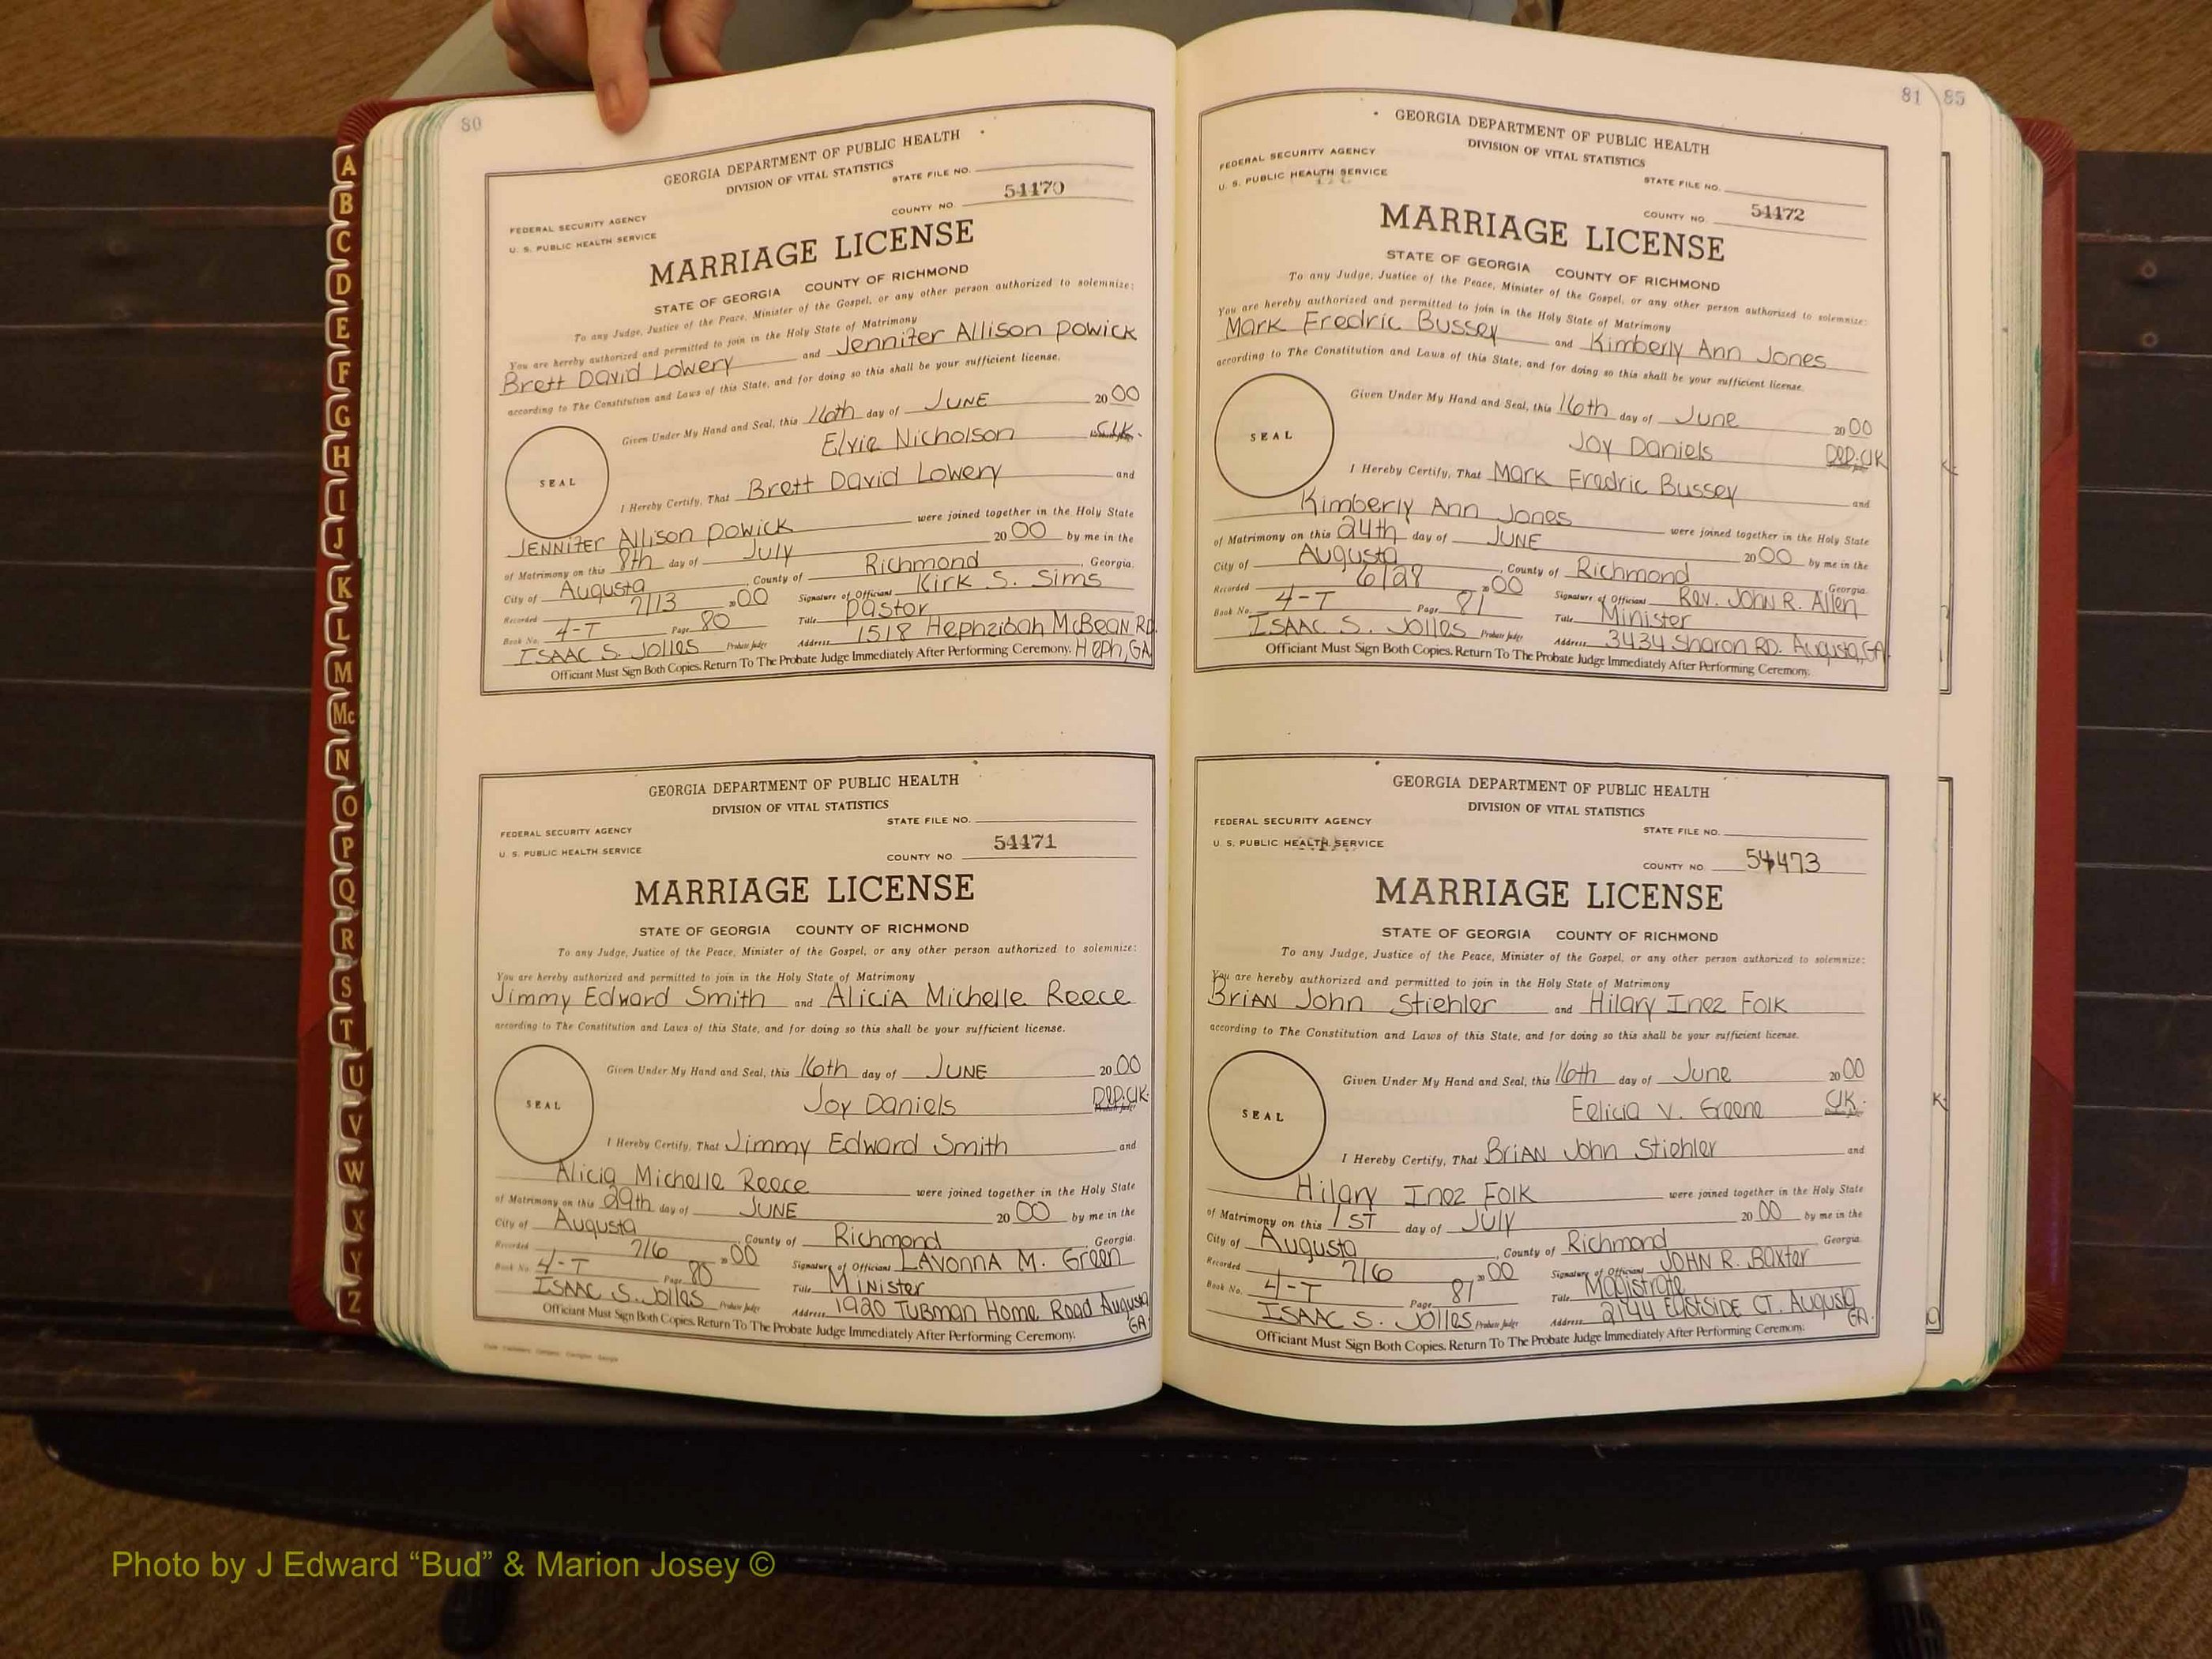 A
B
C
D
E
F
G
H
I
J
K
L
M
Mc
N
O
P
Q
R
S
T
U
V
W
X
Y
Z
80
GEORGIA DEPARTMENT OF PUBLIC HEALTH
DIVISION OF VITAL STATISTICS
STATE FILE NO.
FEDERAL SECURITY AGENCY
U. S. PUBLIC HEALTH SERVICE
COUNTY NO. 54470
MARRIAGE LICENSE
STATE OF GEORGIA COUNTY OF RICHMOND
To any Judge, Justice of the Peace, Minister of the Gospel, or any other person authorized to solemnize:
You are hereby authorized and permitted to join in the Holy State of Matrimony
Brett David Lowery and Jennifer Allison Powick
according to The Constitution and Laws of this State, and for doing so this shall be your sufficient license.
Given Under My Hand and Seal, this 16th day of JUNE 2000
Elvie Nicholson Clk.
SEAL
I Hereby Certify, That Brett David Lowery and
JENNIFER Allison Powick were joined together in the Holy State
of Matrimony on this 8th day of July 2000 by me in the
City of Augusta, County of Richmond, Georgia.
Recorded 7/13 2000 Signature of Officiant Kirk S. Sims
Book No. 4-T Page 80 Title Pastor
ISAAC S. Jolles Probate Judge Address 1518 Hephzibah McBean RD.
Heph, GA
Officiant Must Sign Both Copies. Return To The Probate Judge Immediately After Performing Ceremony.
GEORGIA DEPARTMENT OF PUBLIC HEALTH
DIVISION OF VITAL STATISTICS
STATE FILE NO.
FEDERAL SECURITY AGENCY
U. S. PUBLIC HEALTH SERVICE
COUNTY NO. 54471
MARRIAGE LICENSE
STATE OF GEORGIA COUNTY OF RICHMOND
To any Judge, Justice of the Peace, Minister of the Gospel, or any other person authorized to solemnize:
You are hereby authorized and permitted to join in the Holy State of Matrimony
Jimmy Edward Smith and Alicia Michelle Reece
according to The Constitution and Laws of this State, and for doing so this shall be your sufficient license.
Given Under My Hand and Seal, this 16th day of JUNE 2000
Joy Daniels Dep. Clk.
SEAL
I Hereby Certify, That Jimmy Edward Smith and
Alicia Michelle Reece were joined together in the Holy State
of Matrimony on this 29th day of JUNE 2000 by me in the
City of Augusta, County of Richmond, Georgia.
Recorded 7/6 2000 Signature of Officiant LAvonnA M. Green
Book No. 4-T Page 80 Title Minister
ISAAC S. Jolles Probate Judge Address 1920 Tubman Home Road Augusta
GA.
Officiant Must Sign Both Copies. Return To The Probate Judge Immediately After Performing Ceremony.
81
85
GEORGIA DEPARTMENT OF PUBLIC HEALTH
DIVISION OF VITAL STATISTICS
FEDERAL SECURITY AGENCY
U. S. PUBLIC HEALTH SERVICE
STATE FILE NO.
COUNTY NO. 54472
MARRIAGE LICENSE
STATE OF GEORGIA COUNTY OF RICHMOND
To any Judge, Justice of the Peace, Minister of the Gospel, or any other person authorized to solemnize:
You are hereby authorized and permitted to join in the Holy State of Matrimony
Mark Fredric Bussey and Kimberly Ann Jones
according to The Constitution and Laws of this State, and for doing so this shall be your sufficient license.
Given Under My Hand and Seal, this 16th day of June 2000
Joy Daniels Dep. Clk
SEAL
I Hereby Certify, That Mark Fredric Bussey and
Kimberly Ann Jones were joined together in the Holy State
of Matrimony on this 24th day of JUNE 2000 by me in the
City of Augusta, County of Richmond, Georgia.
Recorded 6/28 2000 Signature of Officiant Rev. John R. Allen
Book No. 4-T Page 81 Title Minister
ISAAC S. Jolles Probate Judge Address 3434 Sharon RD. Augusta, GA.
Officiant Must Sign Both Copies. Return To The Probate Judge Immediately After Performing Ceremony.
GEORGIA DEPARTMENT OF PUBLIC HEALTH
DIVISION OF VITAL STATISTICS
FEDERAL SECURITY AGENCY
U. S. PUBLIC HEALTH SERVICE
STATE FILE NO.
COUNTY NO. 54473
MARRIAGE LICENSE
STATE OF GEORGIA COUNTY OF RICHMOND
To any Judge, Justice of the Peace, Minister of the Gospel, or any other person authorized to solemnize:
You are hereby authorized and permitted to join in the Holy State of Matrimony
Brian John Stiehler and Hilary Inez Folk
according to The Constitution and Laws of this State, and for doing so this shall be your sufficient license.
Given Under My Hand and Seal, this 16th day of June 2000
Felicia V. Greene Clk.
SEAL
I Hereby Certify, That Brian John Stiehler and
Hilary Inez Folk were joined together in the Holy State
of Matrimony on this 1ST day of July 2000 by me in the
City of Augusta, County of Richmond Georgia.
Recorded 7/6 2000 Signature of Officiant JOHN R. Baxter
Book No. 4-T Page 81 Title Magistrate
ISAAC S. Jolles Probate Judge Address 2144 EastSIDE CT. Augusta
GA.
Officiant Must Sign Both Copies. Return To The Probate Judge Immediately After Performing Ceremony.
Photo by J Edward “Bud” & Marion Josey ©